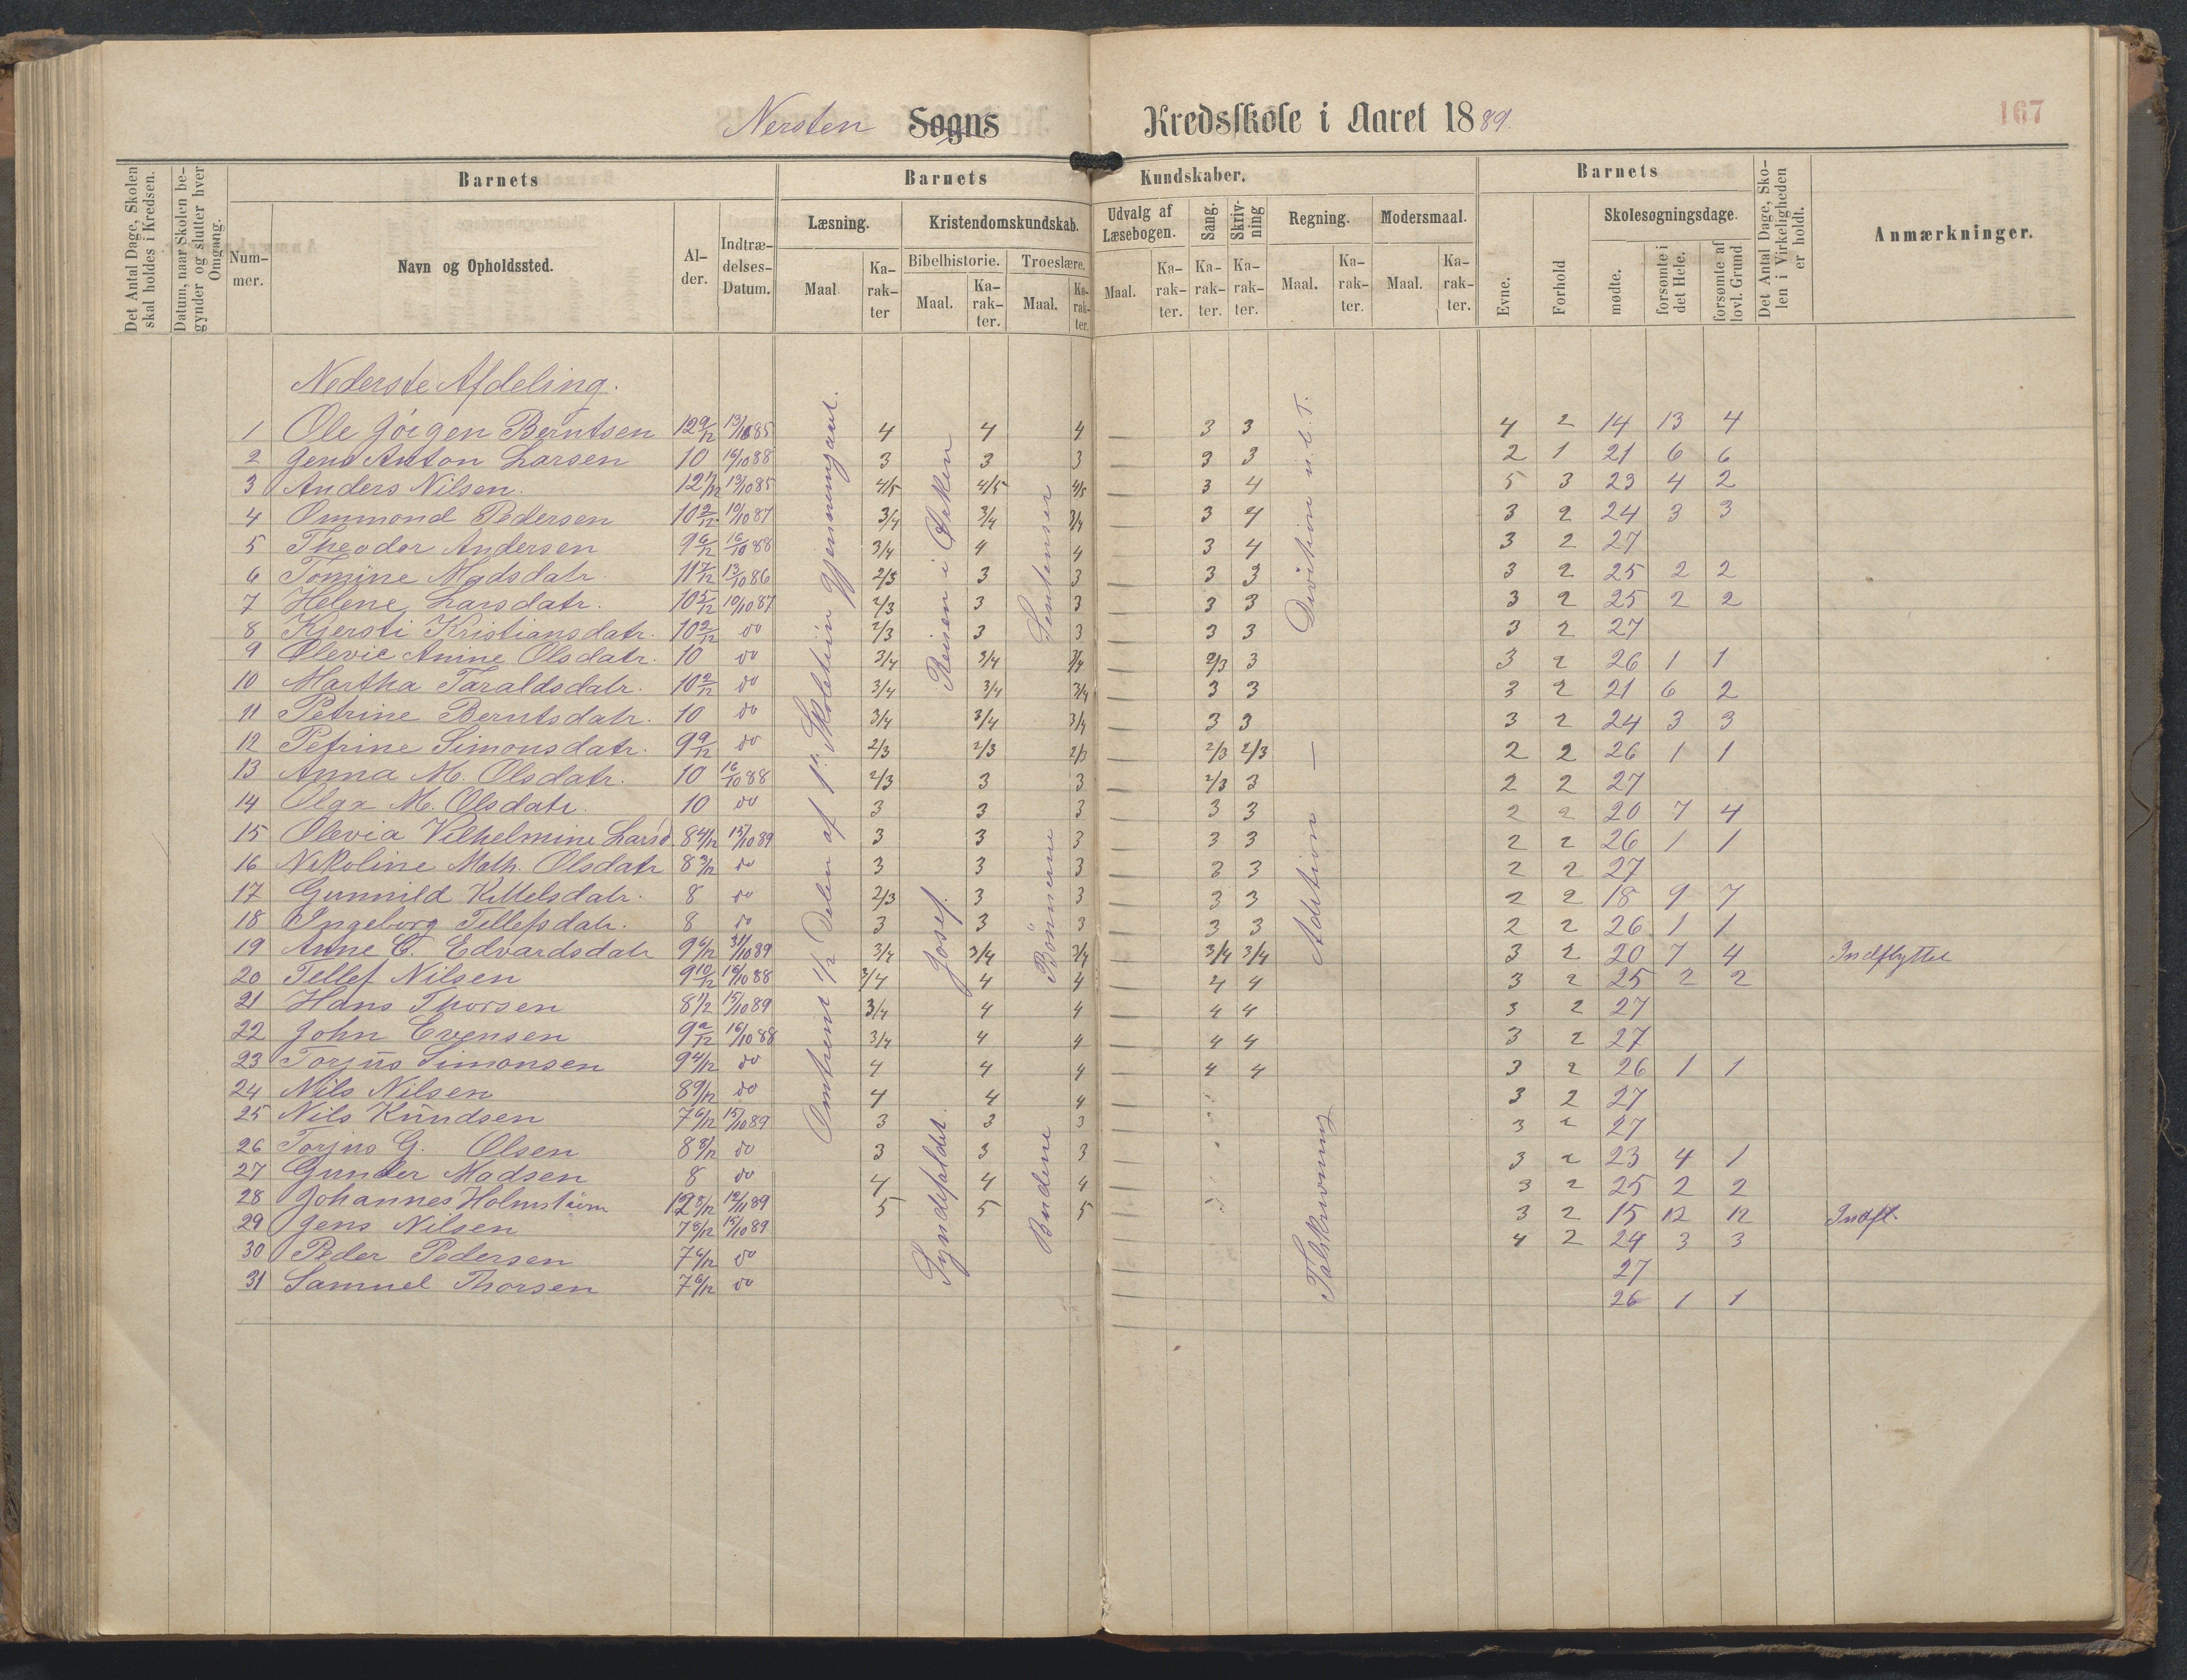 Nersten Sogns Kredsskole i Aaret 1889.
167
Det Antal Dage, Skolen skal holdes i Kredsen.
Datum, naar Skolen begynder og slutter hver Omgang.
Barnets
Barnets Kundskaber.
Barnets
Det Antal Dage, Skolen i Virkeligheden er holdt.
Anmærkninger.
Nummer.
Navn og Opholdssted.
Alder.
Indtrædelses-Datum.
Læsning.
Kristendomskundskab.
Udvalg af Læsebogen.
Sang.
Skrivning
Regning.
Modersmaal.
Evne.
Forhold
Skolesøgningsdage.
Bibelhistorie.
Troeslære.
Maal
Karakter
Maal.
Karakter.
Maal.
Karakter.
Maal.
Karakter.
Karakter.
Karakter.
Maal.
Karakter.
Maal.
Karakter.
mødte.
forsømte i det Hele.
forsømte af lovl. Grund
Nederste Afdeling.
1 Ole Jörgen Berntsen 12 9/12 13/10 85 4 4 4 — 3 3 4 2 14 13 4
2 Jens Anton Larsen 10 16/10 88 3 3 3 — 3 3 2 1 21 6 6
3 Anders Nilsen. 12 13/10 85 4/5 4/5 4/5 — 3 4 5 3 23 4 2
4 Ommond Pedersen 10 2/12 10/10 87 3/4 3/4 3/4 — 3 4 3 2 24 3 3
5 Theodor Andersen 9 6/12 16/10 88 3/4 4 4 — 3 4 3 2 27
6 Tomine Madsdatr. 11 7/12 13/10 86 2/3 3 3 — 3 3 3 2 25 2 2
7 Helene Larsdatr. 10 5/12 10/10 87 2/3 3 3 — 3 3 3 2 25 2 2
8 Kjersti Kristiansdatr. 10 2/12 do 2/3 3 3 — 3 3 3 2 27
9 Olevie Anine Olsdatr. 10 do 3/4 3/4 3/4 — 2/3 3 3 2 26 1 1
10 Martha Taraldsdatr. 10 2/12 do 3/4 3/4 3/4 — 3 3 3 2 21 6 2
11 Petrine Berntsdatr. 10 do 3/4 3/4 3/4 — 3 3 3 2 24 3 3
12 Petrine Simonsdatr. 9 9/12 do 2/3 2/3 2/3 — 2/3 2/3 2 2 26 1 1
13 Anna M. Olsdatr. 10 16/10 88 2/3 3 3 — 2/3 3 2 2 27
14 Olga M. Olsdatr. 10 do 3 3 3 — 3 3 2 2 20 7 4
15 Olevia Vilhelmine Larsd. 8 4/12 15/10 89 3 3 3 — 3 3 2 2 26 1 1
16 Nikoline Math. Olsdatr 8 3/12 do 3 3 3 — 3 3 2 2 27
17 Gunnild Kittelsdatr. 8 do 2/3 3 3 — 3 3 2 2 18 9 7
18 Ingeborg Tellefsdatr. 8 do 3 3 3 — 3 3 2 2 26 1 1
19 Anne C. Edvardsdatr 9 6/12 31/10 89 3/4 3/4 3/4 — 3/4 3/4 3 2 20 7 4 Indflyttet
20 Tellef Nilsen 9 10/12 16/10 88 3/4 4 4 — 4 4 3 2 25 2 2
21 Hans Thorsen 8 15/10 89 3/4 4 4 — 4 4 3 2 27
22 John Evensen 9 16/10 88 3/4 4 4 — 4 4 3 2 27
23 Torjus Simonsen 9 4/12 do 4 4 4 — 4 4 3 2 26 1 1
24 Nils Nilsen 8 9/12 do 4 4 4 — 3 2 27
25 Nils Knudsen 7 6/12 15/10 89 3 3 3 — 3 2 27
26 Torjus G. Olsen 8 3/12 do 3 3 3 — 3 2 23 4 1
27 Gunder Madsen 8 do 4 4 4 — 3 2 25 2 2
28 Johannes Holmström 12 8/12 12/11 89 5 5 5 — 3 2 15 12 12 Indfl.
29 Jens Nilsen 7 8/12 15/10 89 — 4 2 24 3 3
30 Peder Pedersen 7 6/12 do — 27
31 Samuel Thorsen 7 6/12 do — 26 1 1
Omtrent 1/2 Delen af 1ste Skoletrin gjennemgaaet.
Reisen i Ørken
Josef.
Syndefaldet.
Sentenser
Bönnerne
Budene
Division u. b. T.
Adition —
Talskrivning